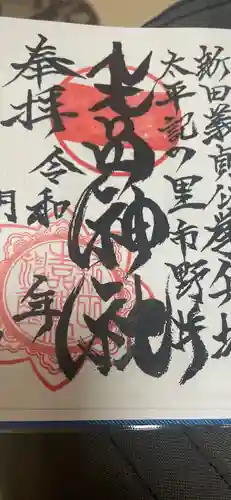 新田義貞公挙公地
太平記の里市野井
生品神社
奉拝
令和 年
月